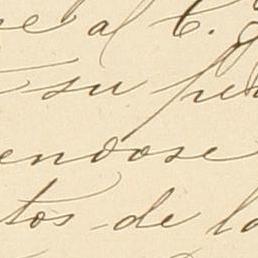 e al C.
su
endose
tos de lo